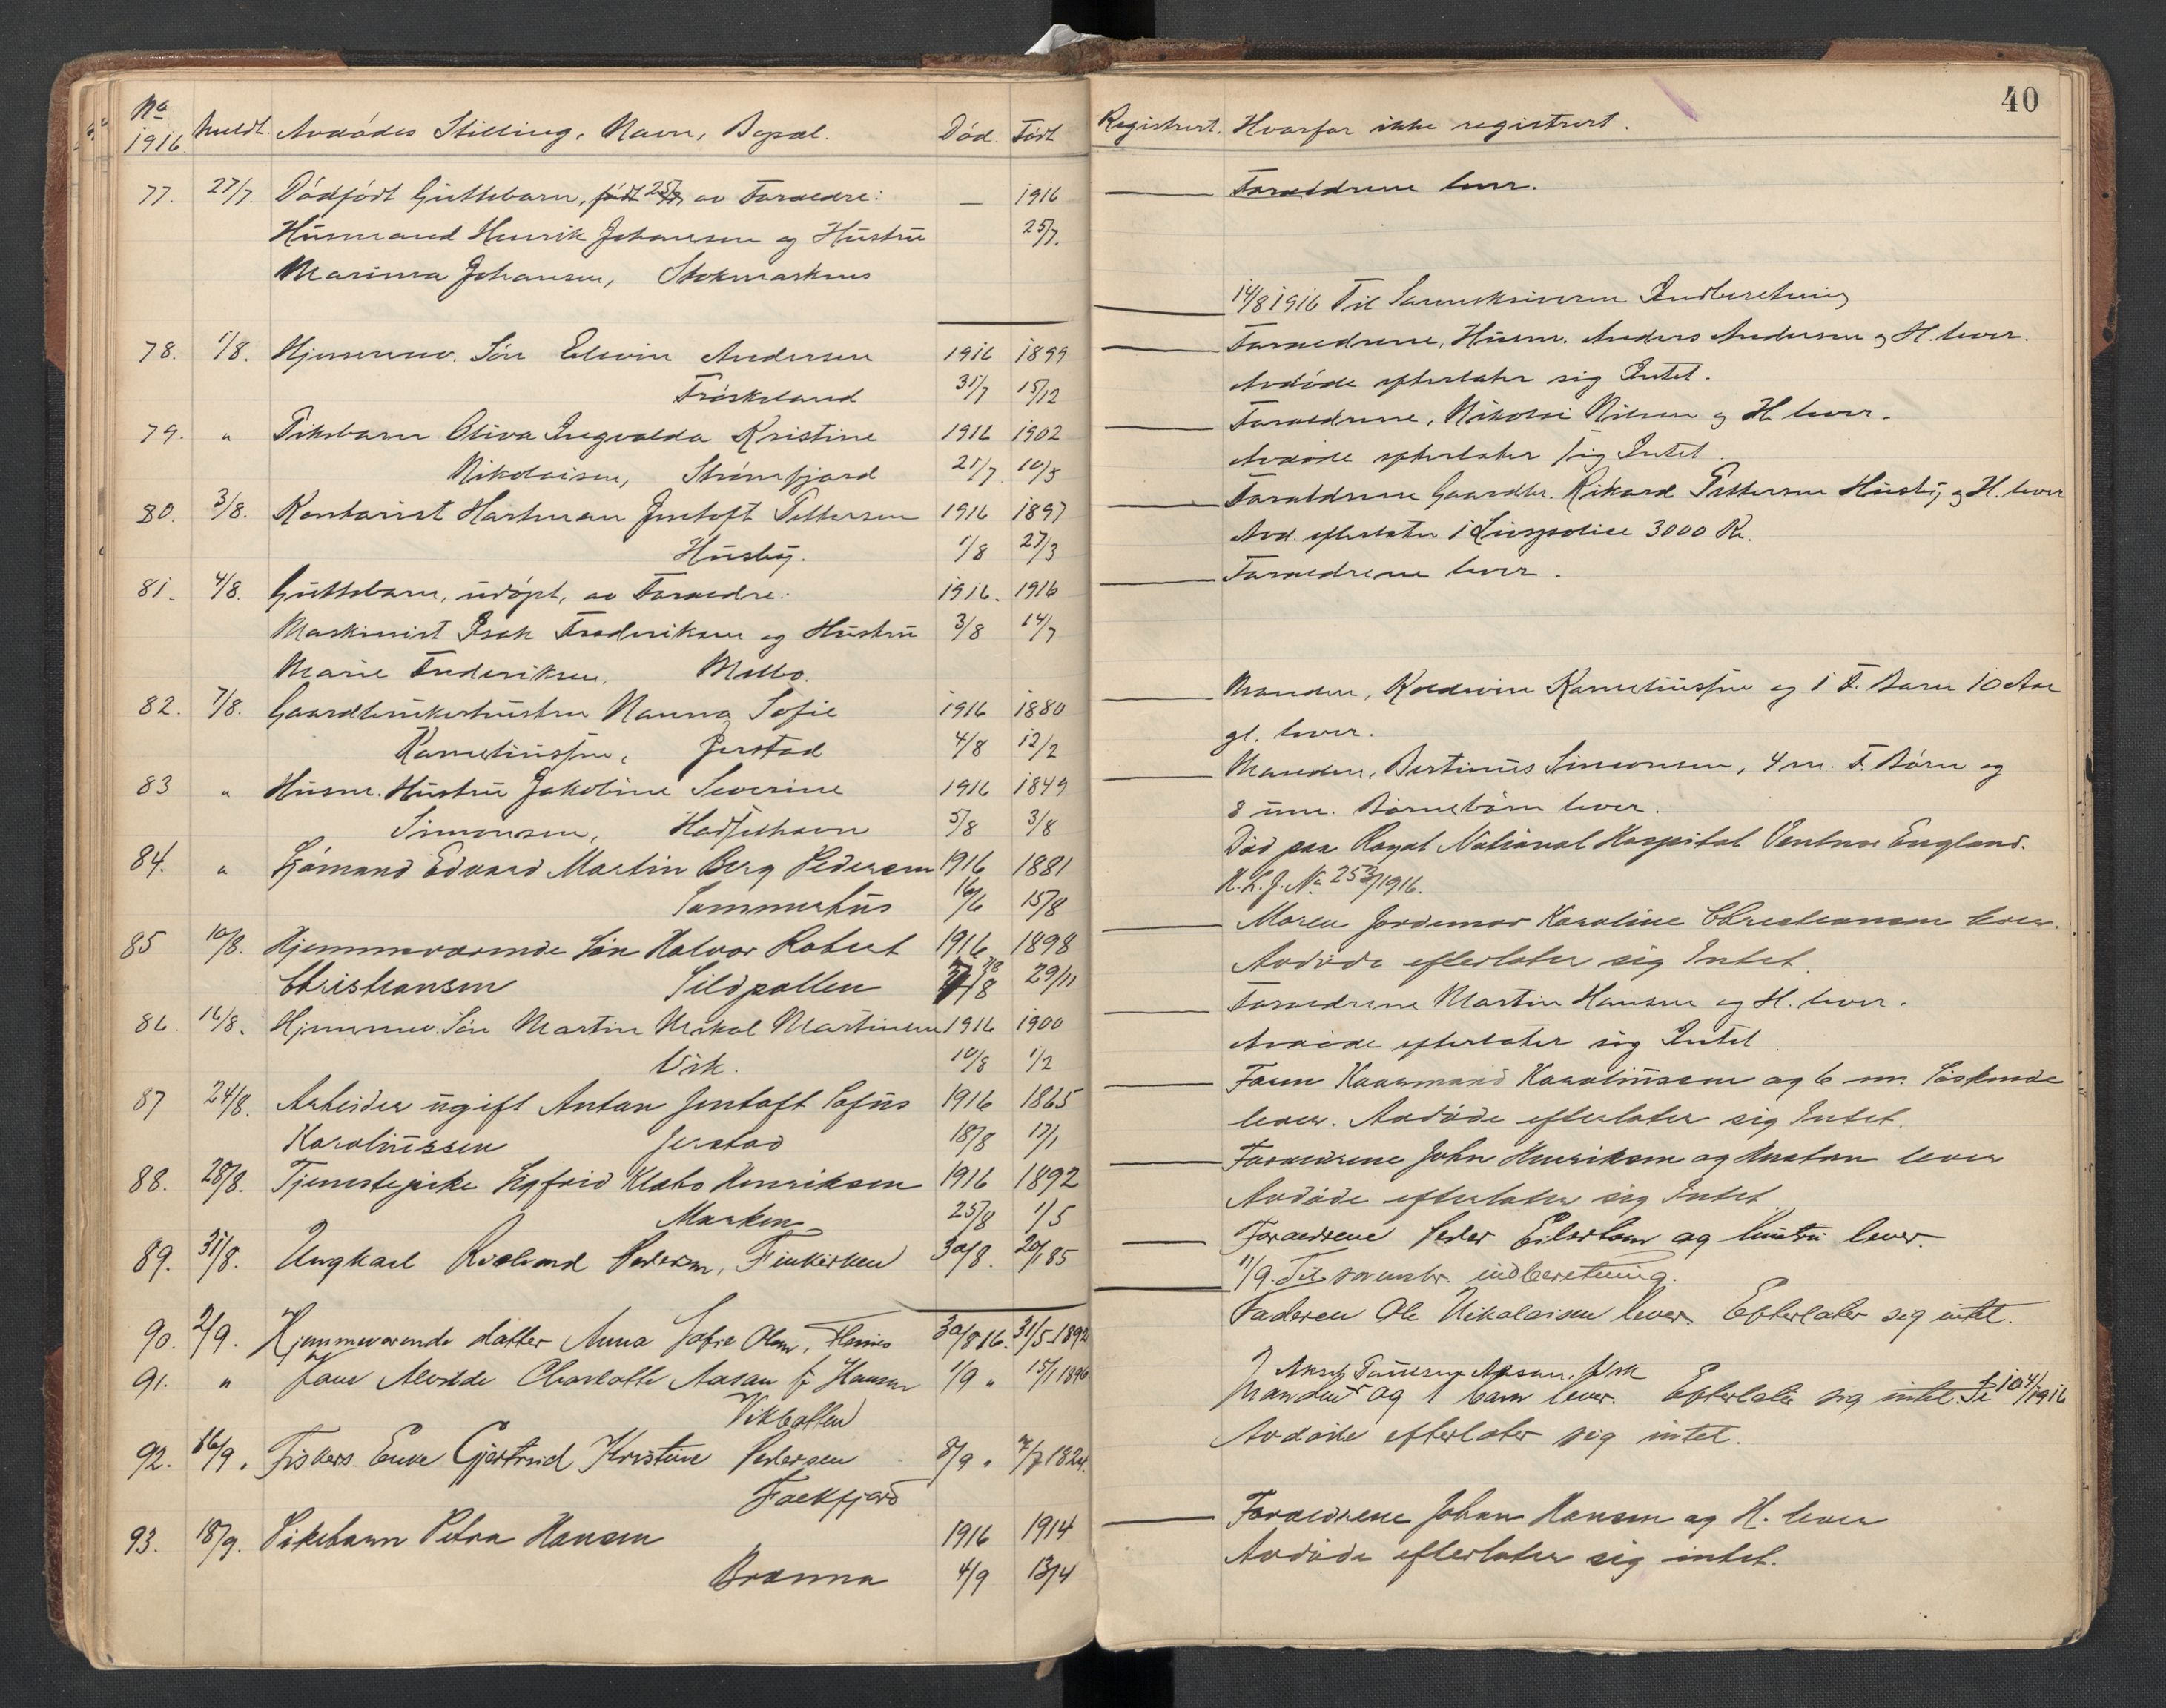 40
No
1916 Meldt. Avdødes Stilling, Navn, Bopæl. Død. Født
Registrert. Hvorfor ikke registrert.
77. 27/7. Dødfødt Guttebarn, født 25/7 av Forældre: — 1916
Husmand Henrik Johansen og Hustru 25/7.
Marina Johansen, Stokmarknes
78. 1/8. Hjemmev. Søn Edwin Andersen 1916 1899
Frøskeland 31/7 15/12
79. " Pikebarn Oliva Ingvalda Kristine 1916 1902
Nikolaisen, Strømfjord 21/7 10/5
80. 3/8. Kontorist Hartman Jentoft Pettersen 1916 1897
Husby. 1/8 27/3
81. 4/8. Guttebarn, udøpt, av Forældre: 1916. 1916
Maskinist Isak Frederiksen og Hustru 3/8 14/7
Marie Frederiksen, Melbo.
82. 7/8. Gaardbrukerhustru Nanna Sofie 1916 1880
Korneliussen, Jerstad 4/8 12/2
83 " Husm. Hustru Jakobine Severine 1916 1849
Simonsen, Hadselhavn 5/8 3/8
84. " Sjømand Edvard Martin Berg Pedersen 1916 1881
Sommerhus 16/6 15/8
85 10/8. Hjemmeværende Søn Halvor Robert 1916 1898
Christiansen Sildpollen 7/8 29/11
86. 16/8. Hjemmev. Søn Martin Nikol Martinsen 1916 1900
Vik. 10/8 1/2
87 24/8. Arbeider ugift Anton Jentoft Sofus 1916 1865
Karolinssen Jerstad 18/8 17/1
88. 28/8. Tjenestepike Sigfrid Klabo Henriksen 1916 1892
Marken 25/8 1/5
89. 31/8. Ungkarl Richard Pedersen, Finkirken 30/8. 20/1 85
90. 2/9. Hjemmeværende datter Anna Sofie Olsen, Flesnes 30/8 16. 31/5 1892
91. " Fru Alvilde Charlotte Aasan f. Hansen 1/9 " 15/1 1896
Vikbotten
92. 16/9. Fiskers Enke Gjertrud Kristine Pedersen 8/9 " 7/7 1824.
Faekfjord
93. 18/9. Pikebarn Petra Hansen 1916 1914
Brænna 4/9 13/4
Forældrene lever.
14/8 1916 Til Sorenskriveren Indberetning
Forældrene, Husm. Anders Andersen og H. lever.
Avdøde efterlater sig Intet.
Forældrene, Nikolai Nilsen og H. lever.
Avdøde efterlater sig Intet.
Forældrene Gaardbr. Rikard Pettersen Husby og H. lever
Avd. efterlater i Livspolice 3000 Kr.
Forældrene lever.
Manden, Korneliussen og 1 F. Barn 10 Aar
gl. lever.
Manden, Bertinus Simonsen, 4 m. F. Børn og
8 um. Barnebørn lever.
Død paa Royal National Hospital Ventnor England.
No 253/1916.
Moren Jordemor Karoline Christiansen lever.
Avdøde efterlater sig Intet.
Forældrene Martin Hansen og H. lever.
Avdøde efterlater sig Intet.
Faren Kaarmand Karolinssen og 6 m. Søskende
lever. Avdøde efterlater sig Intet.
Forældrene John Henriksen og Hustru lever
Avdøde efterlater sig Intet
Forældrene Peder Eilertsen og hustru lever.
11/9. Til sorenskr. indberetning.
Faderen Ole Nikolaisen lever. Efterlater sig intet.
Manden og 1 barn lever. Efterlater sig intet.
Avdøde efterlater sig intet.
Forældrene Johan Hansen og H. lever
Avdøde efterlater sig intet.